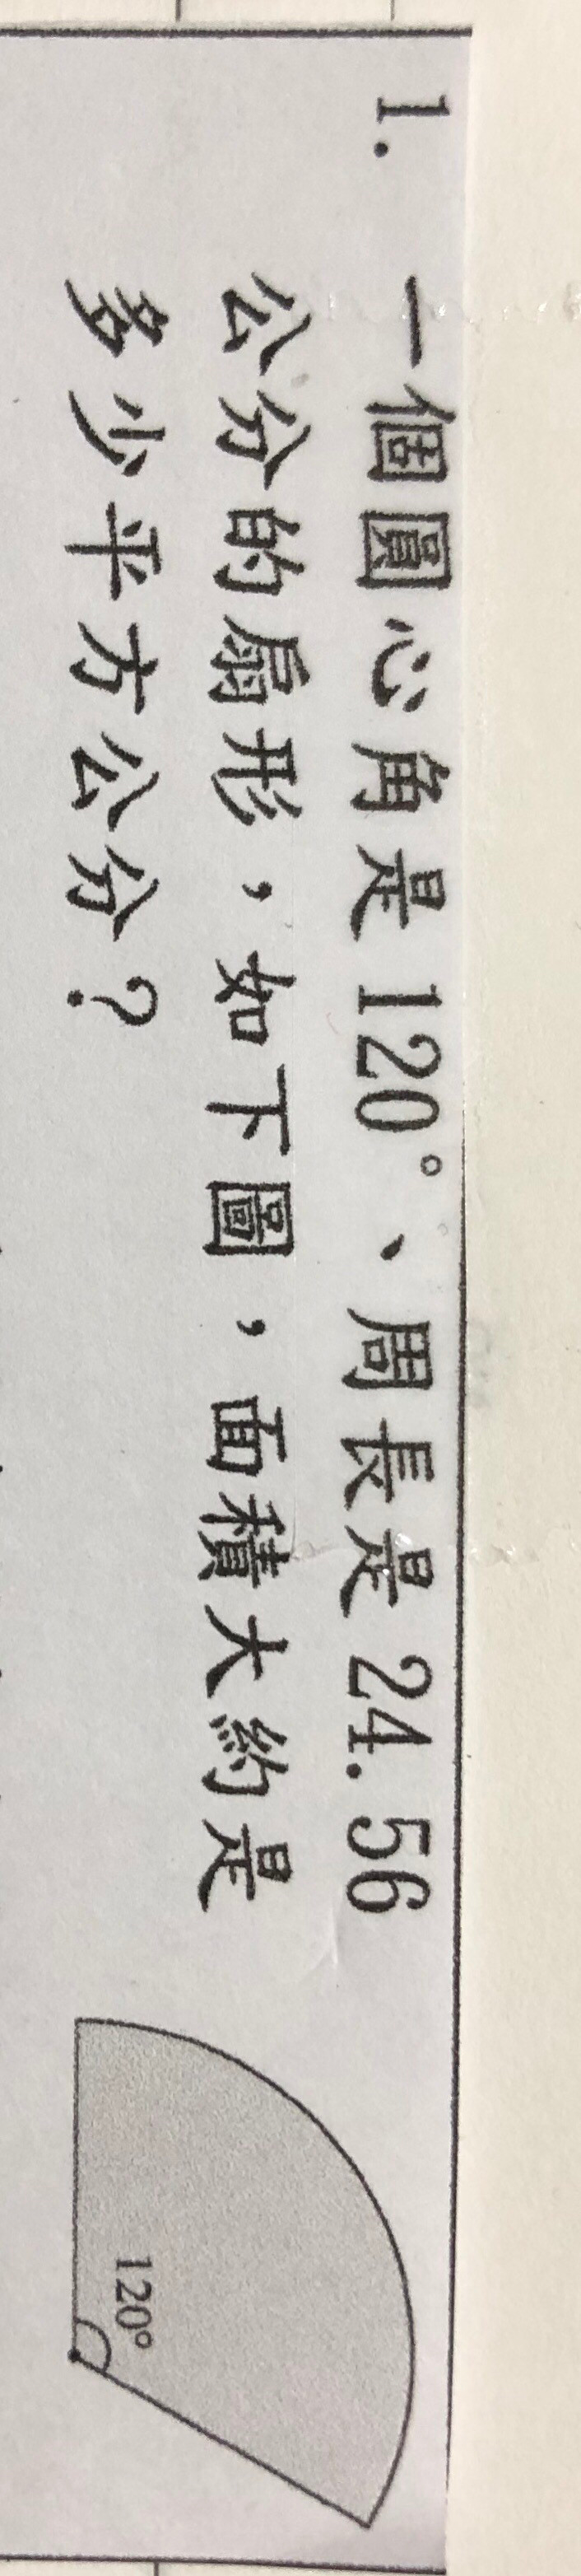 1. 一個圓心角是120°、周長是24.56
公分的扇形，如下圖，面積大約是
多少平方公分？
120°